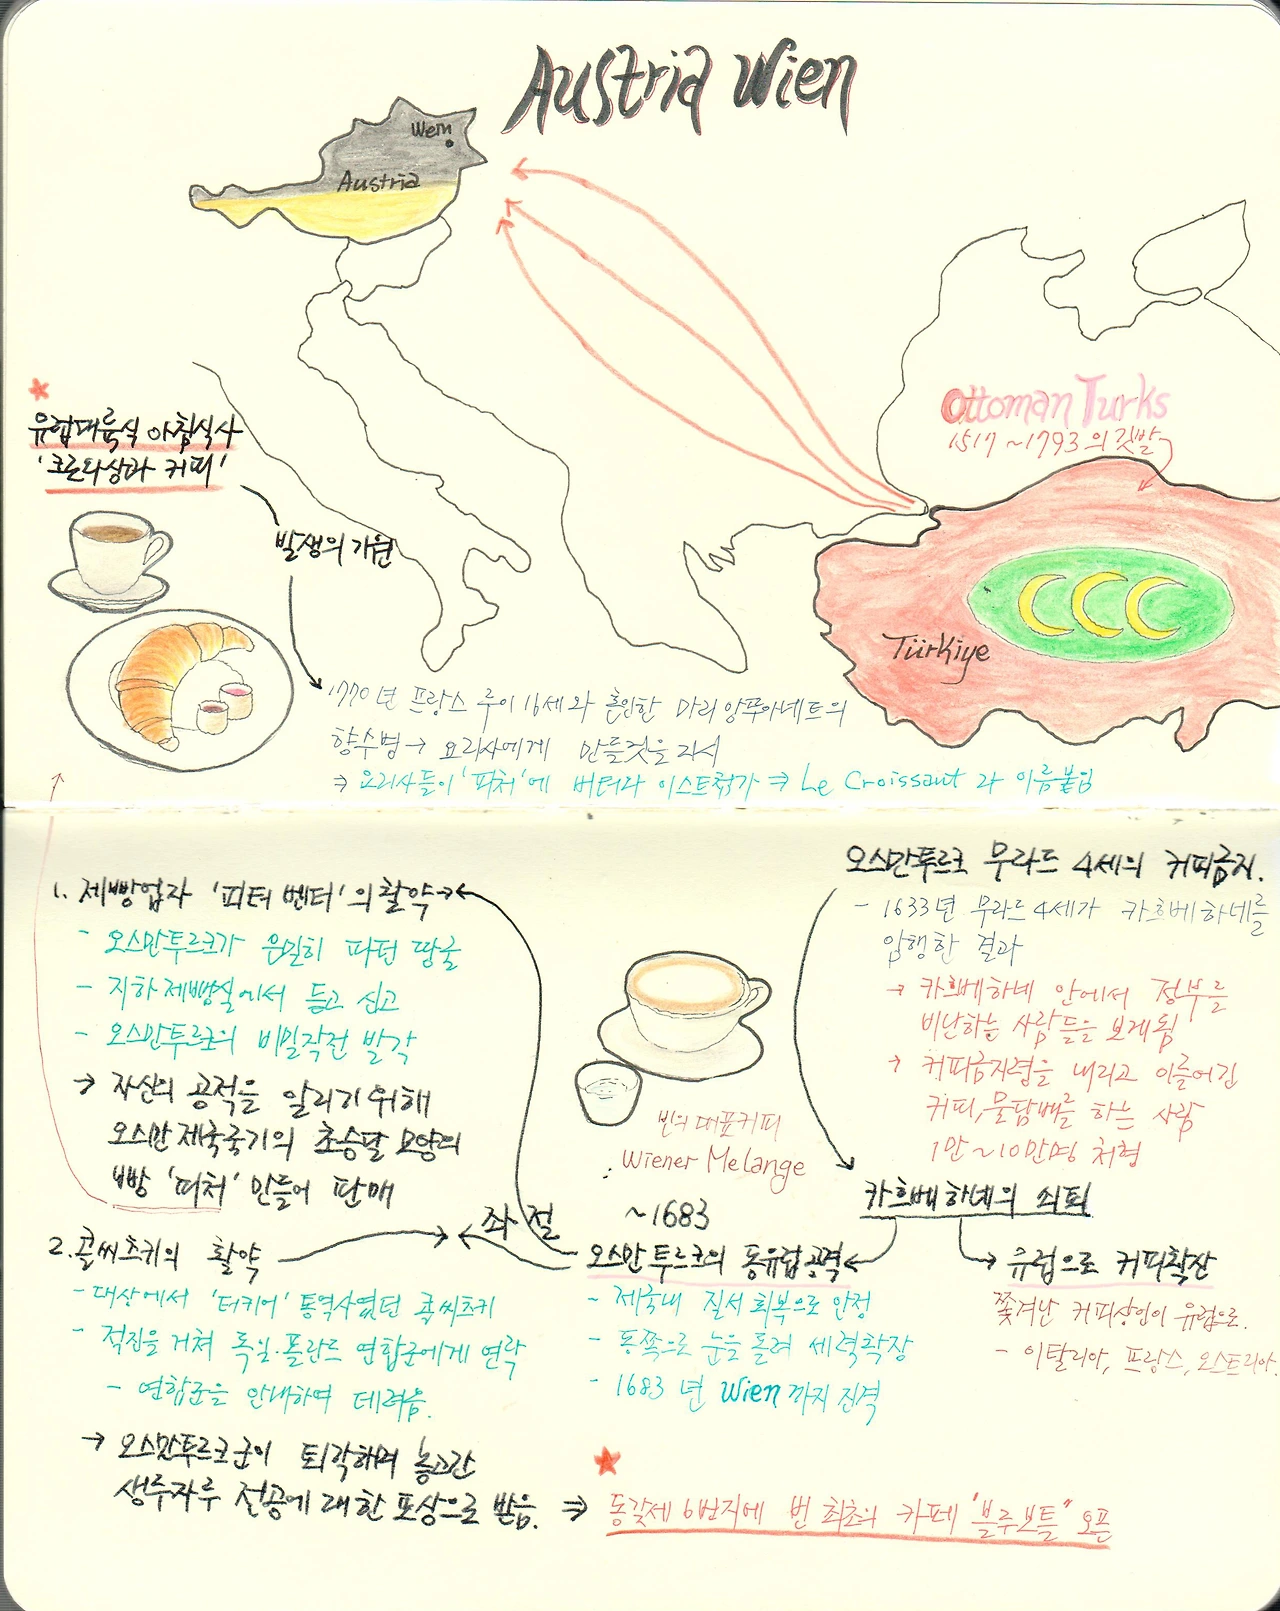 Austria Wien
Wein
Austria
Ottoman Turks
1517 ~ 1793의 깃발
Türkiye
유럽대륙식 아침식사
'크른와상과 커피'
발생의 기원
1770년 프랑스 루이 16세와 혼인한 마리 앙뚜아네트의
향수병 → 요리사에게 만들것을 지시
⇒ 요리사들이 '피처'에 버터와 이스트첨가 ⇒ Le Croissant 라 이름붙임
오스만투르크 무라드 4세의 커피금지.
- 1633년 무라드 4세가 카흐베하네를
암행한 결과
→ 카흐베하네 안에서 정부를
비난하는 사람들을 보게됨
→ 커피금지령을 내리고 이를어긴
커피, 물담배를 하는 사람
1만~10만명 처형
카흐베하네의 쇠퇴
유럽으로 커피확산
쫓겨난 커피상인이 유럽으로.
- 이탈리아, 프랑스, 오스트리아.
1. 제빵업자 '피터 벤더'의 활약
- 오스만투르크가 은밀히 파던 땅굴
- 지하제빵실에서 듣고 신고
- 오스만투르크의 비밀작전 발각
→ 자신의 공적을 알리기 위해
오스만제국국기의 초승달 모양의
빵 '피처' 만들어 판매
빈의 대표커피
Wiener Melange
좌절
~1683
오스만 투르크의 동유럽공격
- 제국내 질서회복으로 안정
- 동쪽으로 눈을 돌려 세력확장
- 1683년 Wien까지 진격
2. 콜씨츠키의 활약
- 대상에서 '터키어' 통역사였던 콜씨츠키
- 적진을 거쳐 독일·폴란드 연합군에게 연락
- 연합군을 안내하여 데려옴.
→ 오스만투르크군이 퇴각하며 놓고간
생두자루 전공에 대한 포상으로 받음. ⇒ 동갖제 6번지에 빈 최초의 카페 "블루보틀" 오픈